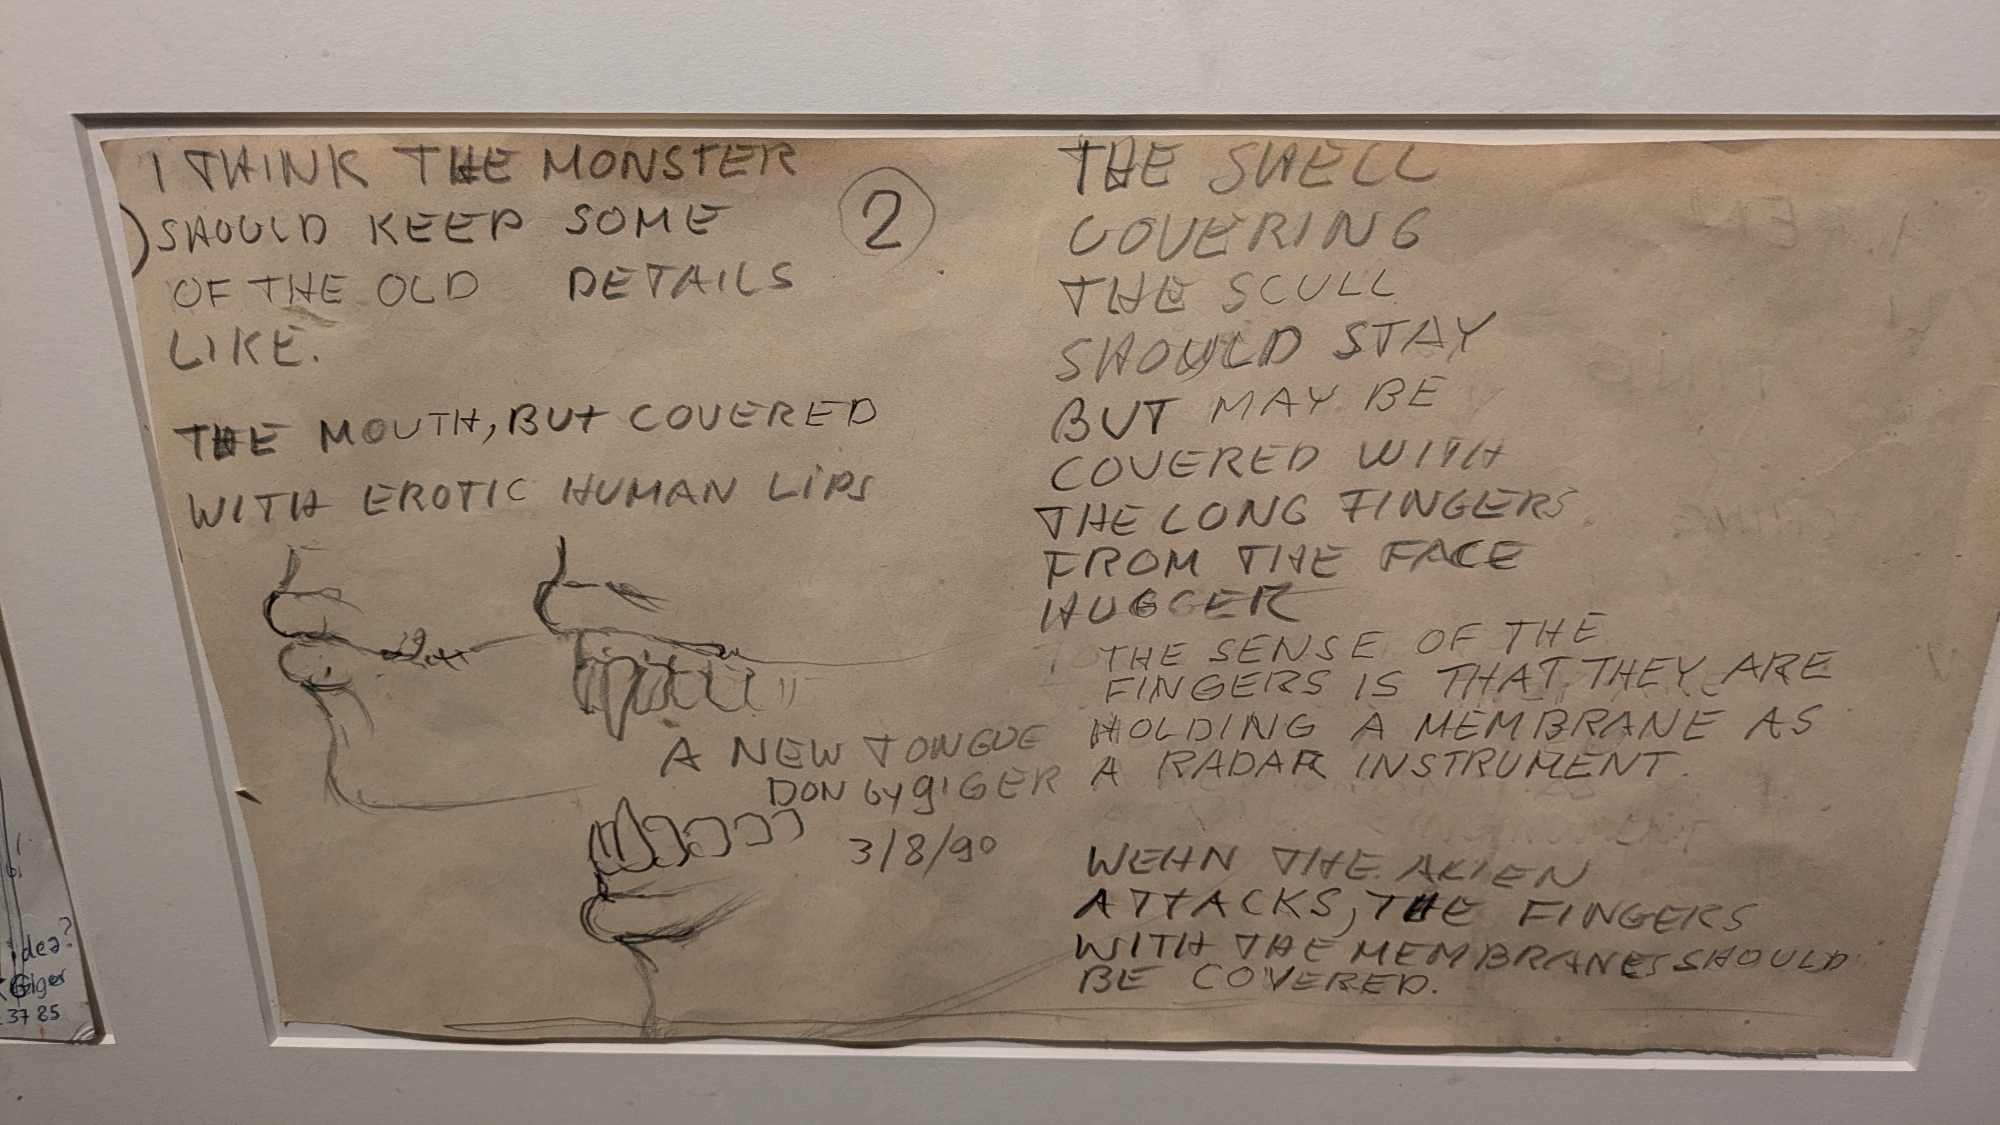 I THINK THE MONSTER
SHOULD KEEP SOME
OF THE OLD DETAILS
LIKE.
THE MOUTH, BUT COVERED
WITH EROTIC HUMAN LIPS
2
A NEW TONGUE
DON by GIGER
3/8/90
THE SHELL
COVERING
THE SCULL
SHOULD STAY
BUT MAY BE
COVERED WITH
THE LONG FINGERS
FROM THE FACE
HUGGER
THE SENSE OF THE
FINGERS IS THAT THEY ARE
HOLDING A MEMBRANE AS
A RADAR INSTRUMENT.
WEHN THE ALIEN
ATTACKS, THE FINGERS
WITH THE MEMBRANES SHOULD
BE COVERED.
idea?
Giger
37 85